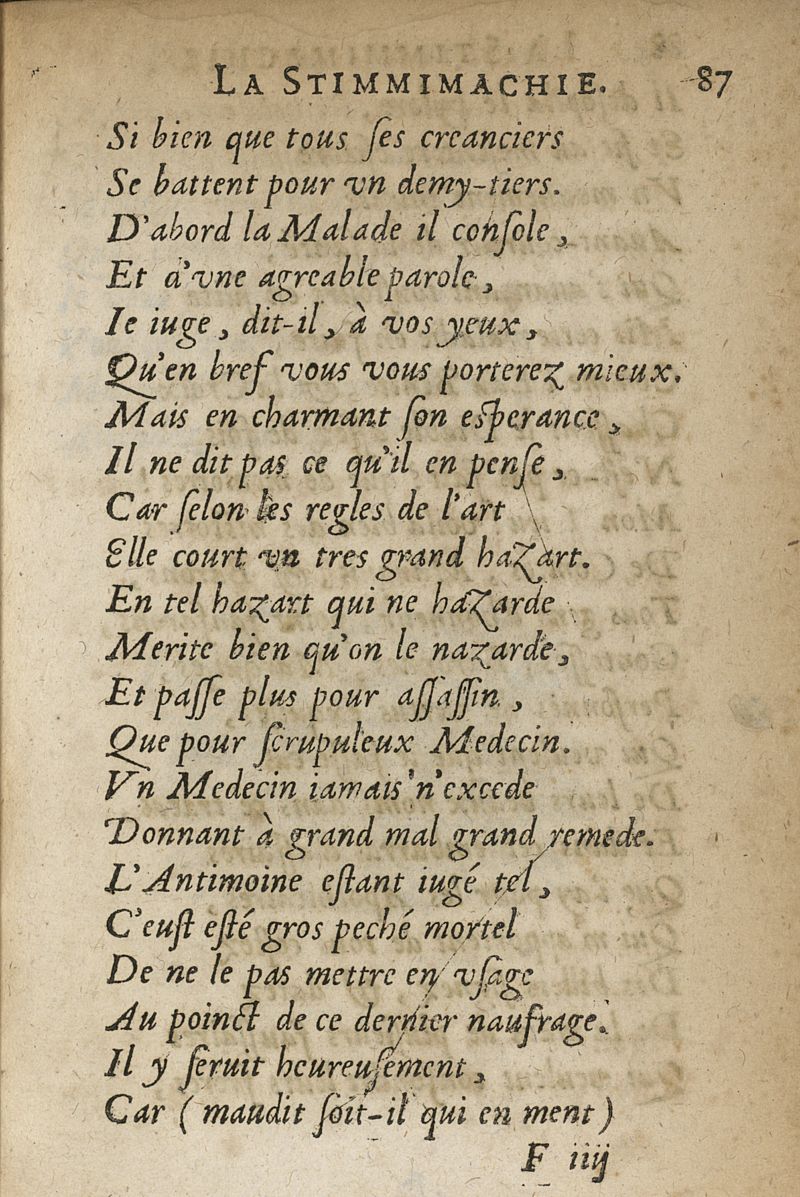 LA STIMMIMACHIE. 87
Si bien que tous ſes creanciers
Se battent pour vn demy-tiers.
D'abord la Malade il conſole,
Et d'vne agreable parole,
Ie iuge, dit-il, à vos yeux,
Qu'en bref vous vous porterez mieux.
Mais en charmant ſon eſperance,
Il ne dit pas ce qu'il en penſe,
Car ſelon les regles de l'art
Elle court vn tres grand hazart.
En tel hazart qui ne hazarde
Merite bien qu'on le nazarde,
Et paſſe plus pour aſſaſſin,
Que pour ſcrupuleux Medecin.
Vn Medecin iamais n'excede
Donnant à grand mal grand remede.
L'Antimoine eſtant iugé tel,
C'euſt eſté gros peché mortel
De ne le pas mettre en vſage
Au poinct de ce dernier naufrage.
Il y ſeruit heureuſement,
Car (maudit ſoit-il qui en ment)
F iiij